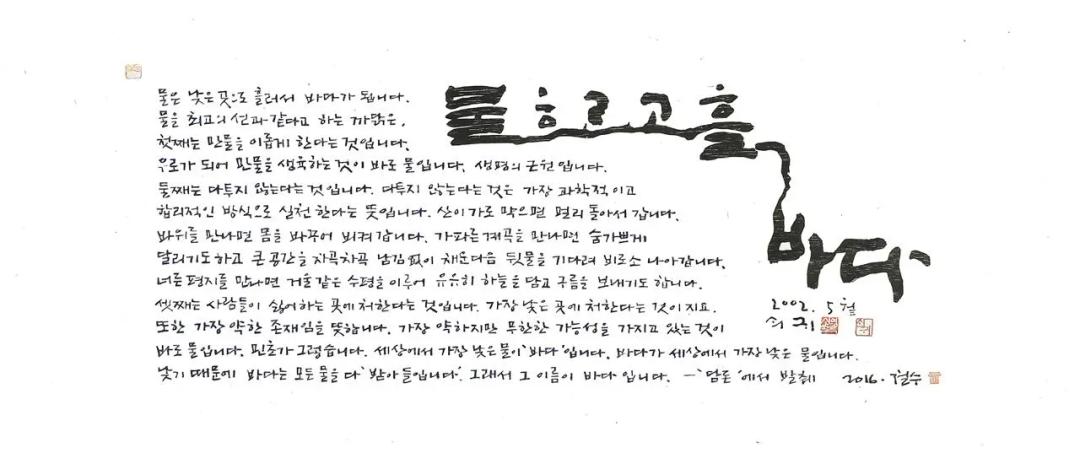 물흐르고흘
바다
2002. 5월
쇠귀
물은 낮은 곳으로 흘러서 바다가 됩니다.
물을 최고의 선과 같다고 하는 까닭은,
첫째는 만물을 이롭게 한다는 것입니다.
우로가 되어 만물을 생육하는 것이 바로 물입니다. 생명의 근원입니다.
둘째는 다투지 않는다는 것입니다. 다투지 않는다는 것은 가장 과학적이고
합리적인 방식으로 실천한다는 뜻입니다. 산이 가로 막으면 멀리 돌아서 갑니다.
바위를 만나면 몸을 나누어 비켜 갑니다. 가파른 계곡을 만나면 숨가쁘게
달리기도 하고 큰 공간을 차곡차곡 남김없이 채운 다음 뒷물을 기다려 비로소 나아갑니다.
너른 평지를 만나면 거울 같은 수평을 이루어 유유히 하늘을 담고 구름을 보내기도 합니다.
셋째는 사람들이 싫어하는 곳에 처한다는 것입니다. 가장 낮은 곳에 처한다는 것이지요.
또한 가장 약한 존재임을 뜻합니다. 가장 약하지만 무한한 가능성을 가지고 있는 것이
바로 물입니다. 민초가 그렇습니다. 세상에서 가장 낮은 물이 '바다'입니다. 바다가 세상에서 가장 낮은 물입니다.
낮기 때문에 바다는 모든 물을 다 '받아들입니다'. 그래서 그 이름이 바다입니다. - '담론'에서 발췌 2016. 철수